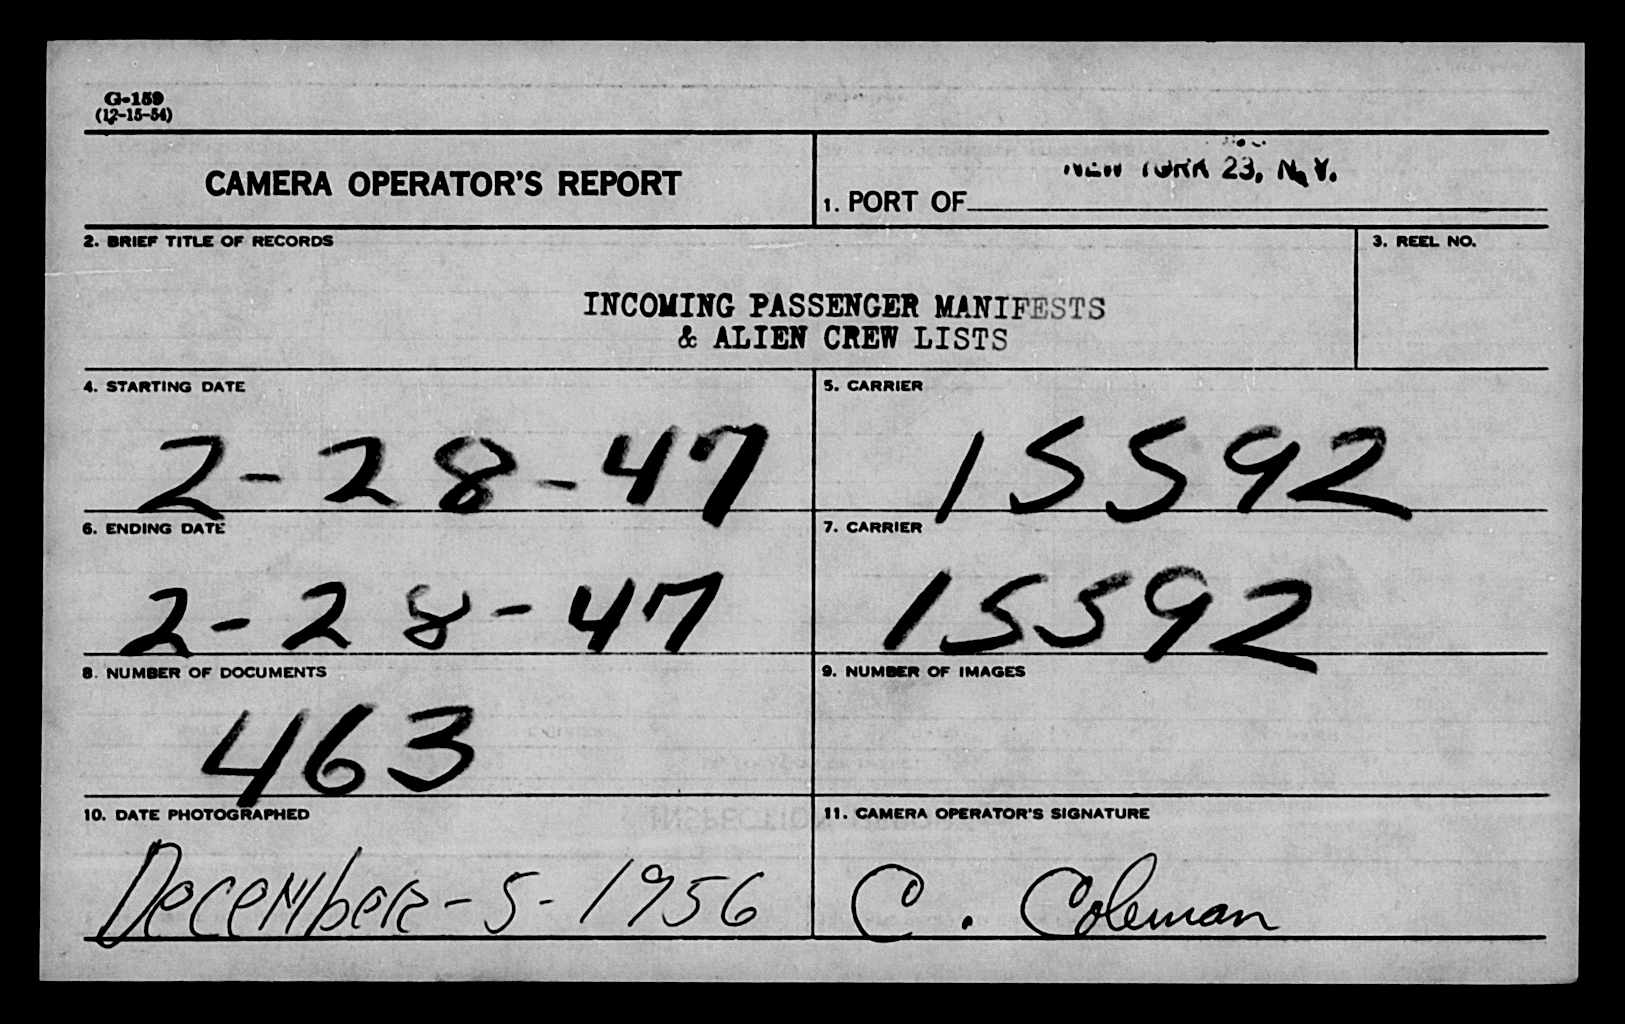 G-159
(12-15-54)
CAMERA OPERATOR'S REPORT
NEW YORK 23, N.Y.
1. PORT OF
2. BRIEF TITLE OF RECORDS
3. REEL NO.
INCOMING PASSENGER MANIFESTS
& ALIEN CREW LISTS
4. STARTING DATE
5. CARRIER
2-28-47
15592
6. ENDING DATE
7. CARRIER
2-28-47
15592
8. NUMBER OF DOCUMENTS
9. NUMBER OF IMAGES
463
10. DATE PHOTOGRAPHED
11. CAMERA OPERATOR'S SIGNATURE
December-5-1956
C. Coleman